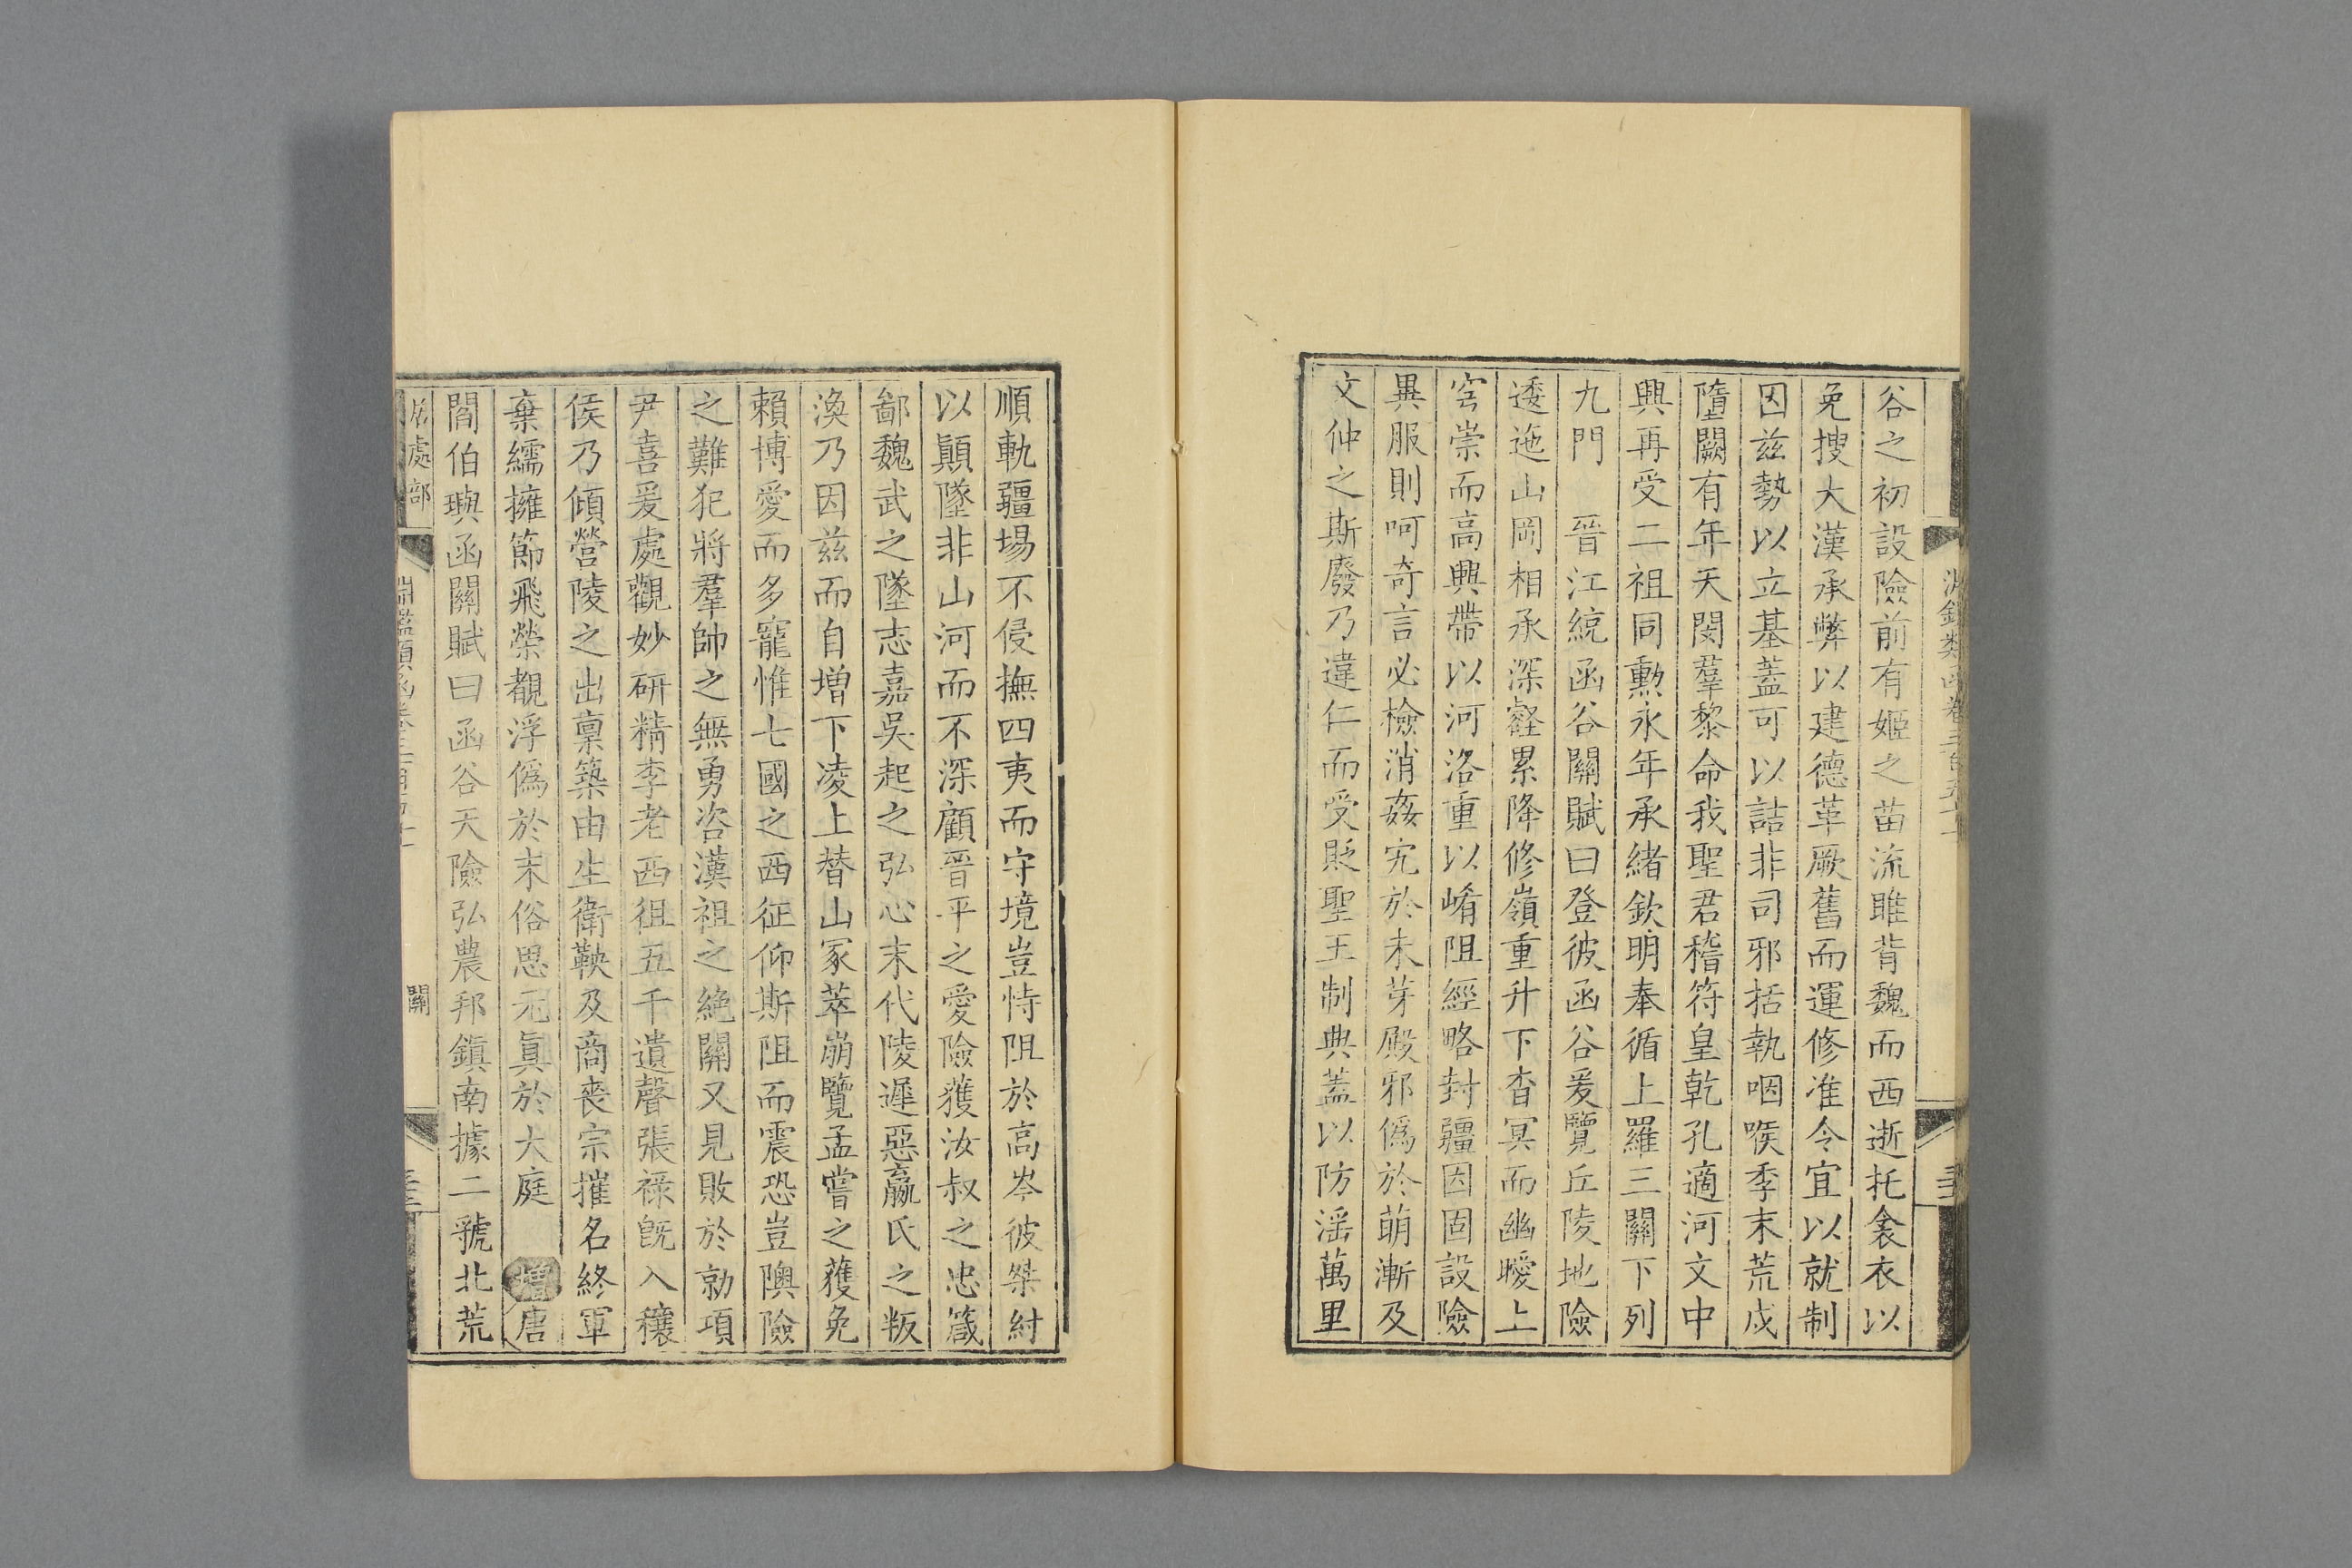 谷之初設險前有姬之苗流雎背魏而西逝托衾衣以
免搜大漢承弊以建德革厥舊而運修准令宜以就制
因兹勢以立基蓋可以詰非司邪括執咽喉季末荒戍
隳闕有年天閔羣黎命我聖君稽符皇乾孔適河文中
興再受二祖同勲永年承緒欽明奉循上羅三關下列
九門　晉江統函谷關賦曰登彼函谷爰覽丘陵地險
逶迤山岡相承深壑累降修嶺重升下杳冥而幽曖上
穹崇而高興帶以河洛重以崤阻經略封疆因固設險
異服則呵奇言必檢消姦宄於未芽殿邪僞於萌漸及
文仲之斯廢乃違仁而受貶聖王制典蓋以防滛萬里
順軌疆埸不侵撫四夷而守境豈恃阻於高岑彼桀紂
以顚墜非山河而不深顧晉平之愛險獲汝叔之忠箴
鄙魏武之墜志嘉吳起之弘心末代陵遲惡嬴氏之叛
渙乃因兹而自增下凌上替山冢萃崩覽孟嘗之獲免
賴博愛而多寵惟七國之西征仰斯阻而震恐豈隩險
之難犯將羣帥之無勇咨漢祖之絶關又見敗於勍項
尹喜爰處觀妙研精李老西徂五千遺聲張祿旣入穰
侯乃傾營陵之出稟築由生衛鞅及商喪宗摧名終軍
棄繻擁節飛榮覩浮僞於末俗思元眞於大庭　增唐
閻伯璵函關賦曰函谷天險弘農邦鎭南據二虢北荒
居處部
淵鑑類函卷三百五十
關